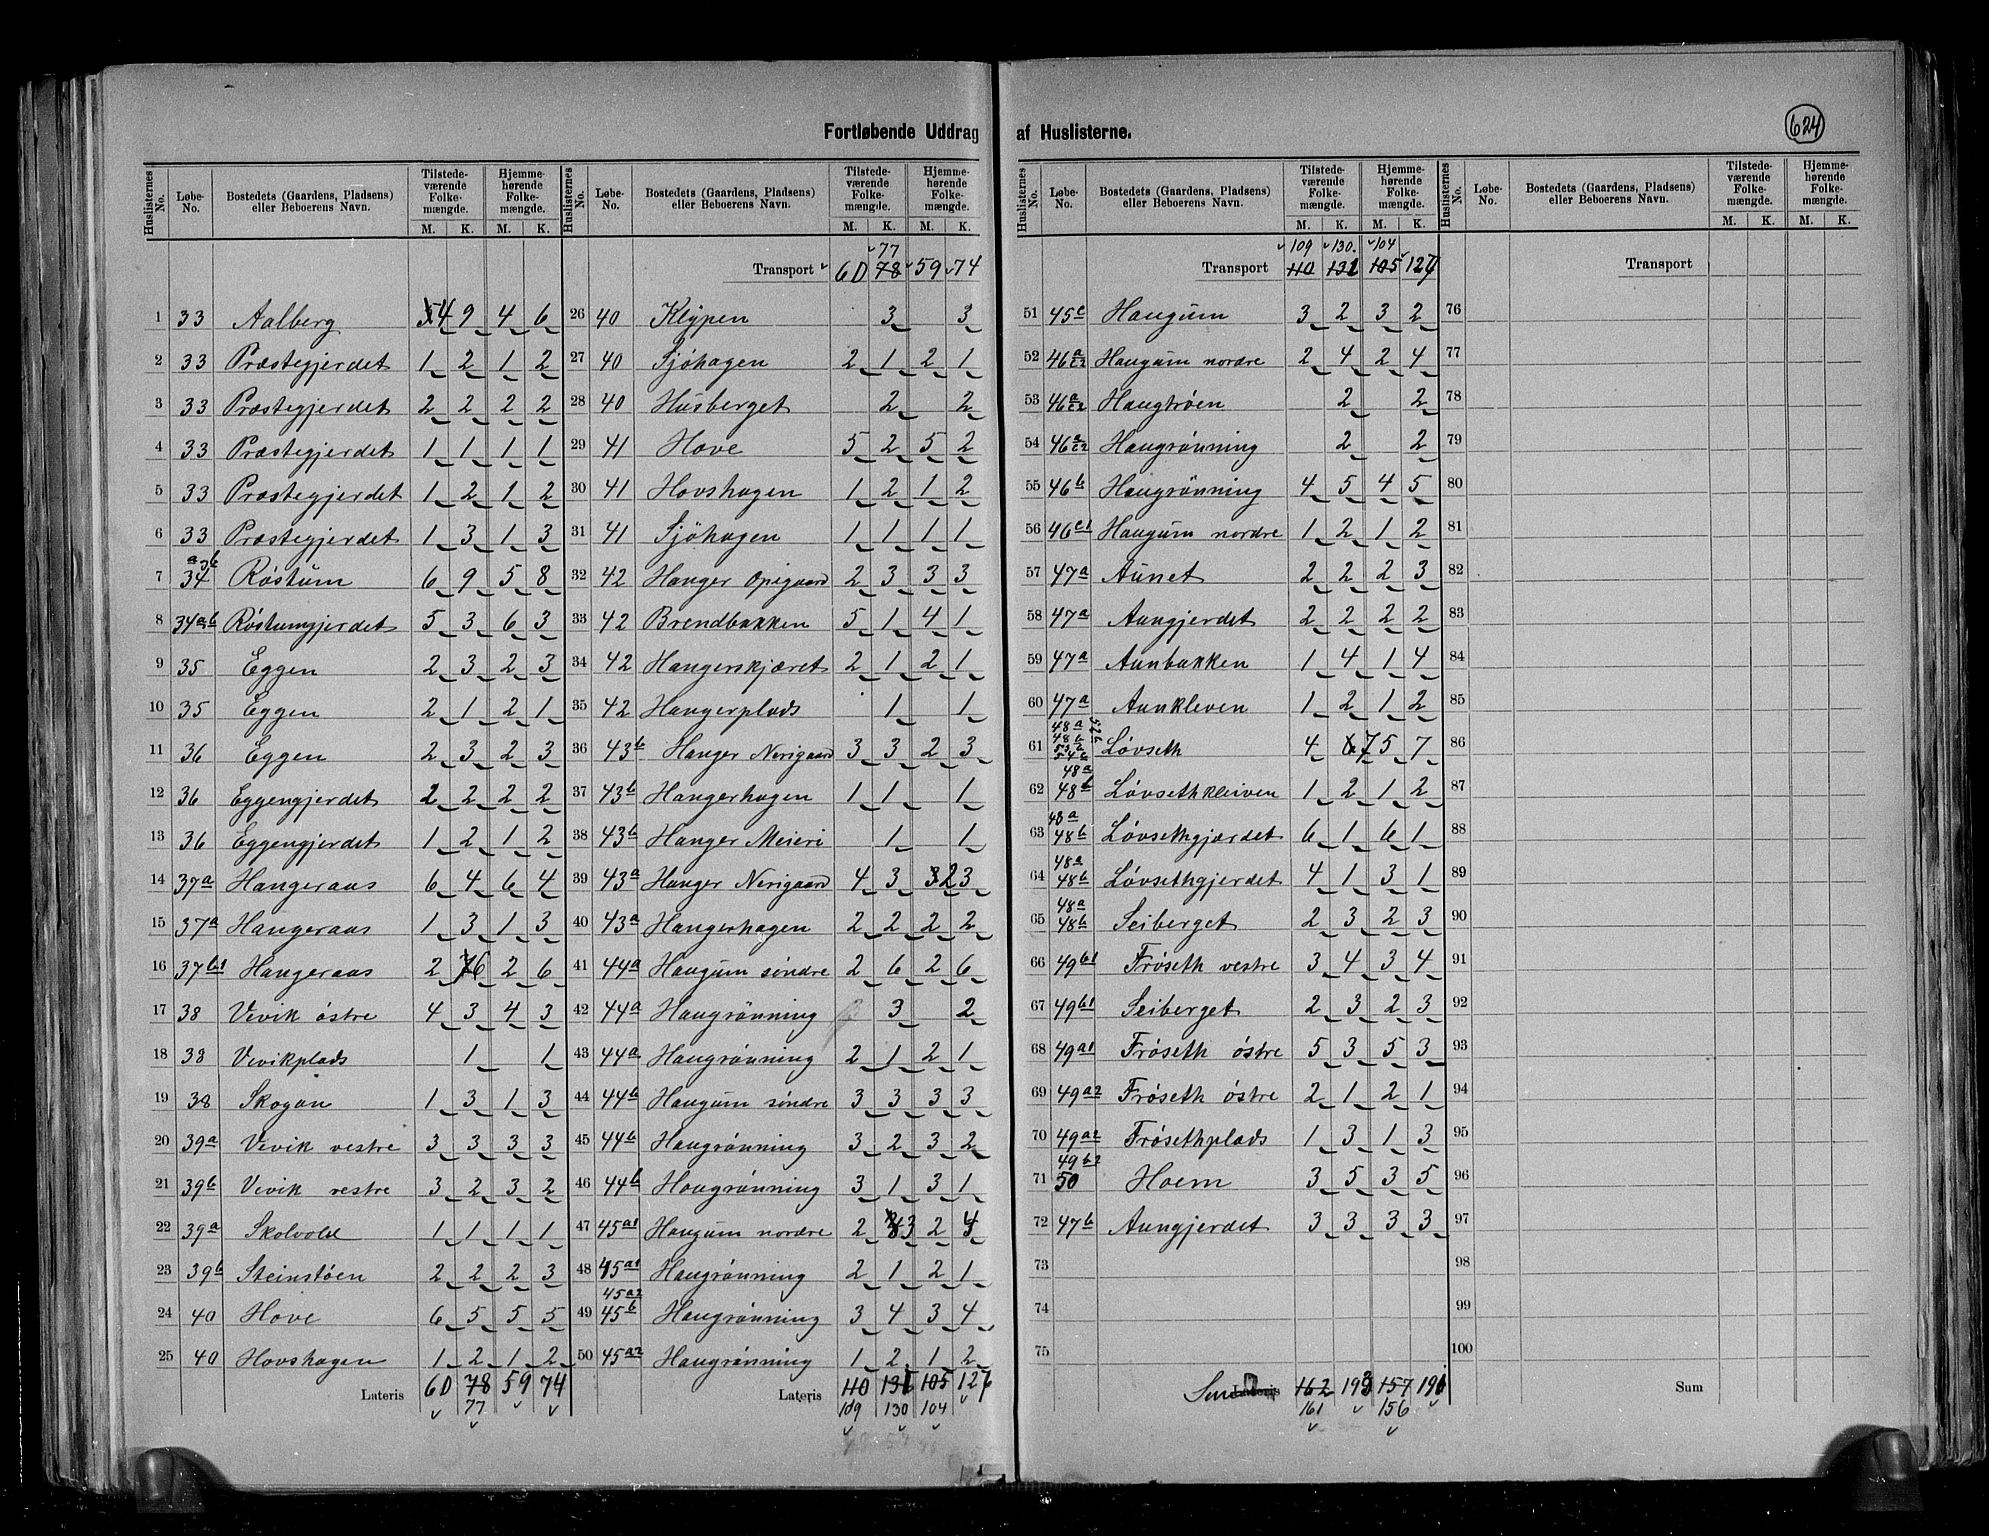 Fortløbende Uddrag af Huslisterne.
624
Huslisternes No. Løbe-No. Bostedets (Gaardens, Pladsens) eller Beboerens Navn. Tilstedeværende Folkemængde. M. K. Hjemmehørende Folkemængde. M. K.
1 33 Aalberg 4 9 4 6
2 33 Præstegjerdet 1 2 1 2
3 33 Præstegjerdet 2 2 2 2
4 33 Præstegjerdet 1 1 1 1
5 33 Præstegjerdet 1 2 1 2
6 33 Præstegjerdet 1 3 1 3
7 34 a og b Røstum 6 9 5 8
8 34ab Røstumgjerdet 5 3 6 3
9 35 Eggen 2 3 2 3
10 35 Eggen 2 1 2 1
11 36 Eggen 2 3 2 3
12 36 Eggengjerdet 2 2 2 2
13 36 Eggengjerdet 1 2 1 2
14 37a Hangeraas 6 4 6 4
15 37a Hangeraas 1 3 1 3
16 37b1 Hangeraas 2 6 2 6
17 38 Vevik østre 4 3 4 3
18 38 Vevikplads 1 1
19 38 Skogan 1 3 1 3
20 39a Vevik vestre 3 3 3 3
21 39b Vevik vestre 3 2 3 2
22 39a Skolvold 1 1 1 1
23 39b Steinstøen 2 2 2 3
24 40 Hove 6 5 5 5
25 40 Hovshagen 1 2 1 2
Lateris 60 78 59 74
77
Huslisternes No. Løbe-No. Bostedets (Gaardens, Pladsens) eller Beboerens Navn. Tilstedeværende Folkemængde. M. K. Hjemmehørende Folkemængde. M. K.
77
Transport 60 78 59 74
26 40 Klypen 3 3
27 40 Sjøhagen 2 1 2 1
28 40 Husberget 2 2
29 41 Hove 5 2 5 2
30 41 Hovshagen 1 2 1 2
31 41 Sjøhagen 1 1 1 1
32 42 Hanger Opigaard 2 3 3 3
33 42 Brendbakken 5 1 4 1
34 42 Hangerskjæret 2 1 2 1
35 42 Hangerplads 1 1
36 43b Hanger Nerigaard 3 3 2 3
37 43b Hangerhagen 1 1 1
38 43b Hanger Meieri 1 1
39 43a Hanger Nerigaard 4 3 2 3
40 43a Hangerhagen 2 2 2 2
41 44a Haugum søndre 2 6 2 6
42 44a Haugrønning 3 2
43 44a Haugrønning 2 1 2 1
44 44b Haugum søndre 3 3 3 3
45 44b Haugrønning 3 2 3 2
46 44b Haugrønning 3 1 3 1
47 45a1 Haugum nordre 2 3 2
48 45a1 Haugrønning 2 1 2 1
49 45a2 45b Haugrønning 3 4 3 4
50 45a2 Haugrønning 1 2 1 2
Lateris 110 131 105
109 130 104
Huslisternes No. Løbe-No. Bostedets (Gaardens, Pladsens) eller Beboerens Navn. Tilstedeværende Folkemængde. M. K. Hjemmehørende Folkemængde. M. K.
109 130 104
Transport 110 131 105
51 45c Haugum 3 2 3 2
52 46a c2 Haugum nordre 2 4 2 4
53 46a c2 Haugtrøen 2 2
54 46a c2 Haugrønning 2 2
55 46b Haugrønning 4 5 4 5
56 46c1 Haugum nordre 1 2 1 2
57 47a Aunet 2 2 2 3
58 47a Aungjerdet 2 2 2 2
59 47a Aunbakken 1 4 1 4
60 47a Aunkleven 1 2 1 2
61 48a 48b Løvseth 4 7 5 7
62 48a 48b Løvsethkleiven 1 2 1 2
63 48a 48b Løvsethgjærdet 6 1 6 1
64 48a 48b Løvsethgjerdet 4 1 3 1
65 48a 48b Seiberget 2 3 2 3
66 49b1 Frøseth vestre 3 4 3 4
67 49b1 Seiberget 2 3 2 3
68 49a1 Frøseth østre 5 3 5 3
69 49a2 Frøseth østre 2 1 2 1
70 49a2 Frøsethplads 1 3 1 3
71 49b2 50 Hoem 3 5 3 5
72 47b Aungjerdet 3 3 3 3
73
74
75
Lateris 162 193 157
161 156
Huslisternes No. Løbe-No. Bostedets (Gaardens, Pladsens) eller Beboerens Navn. Tilstedeværende Folkemængde. M. K. Hjemmehørende Folkemængde. M. K.
Transport
76
77
78
79
80
81
82
83
84
85
86
87
88
89
90
91
92
93
94
95
96
97
98
99
100
Sum